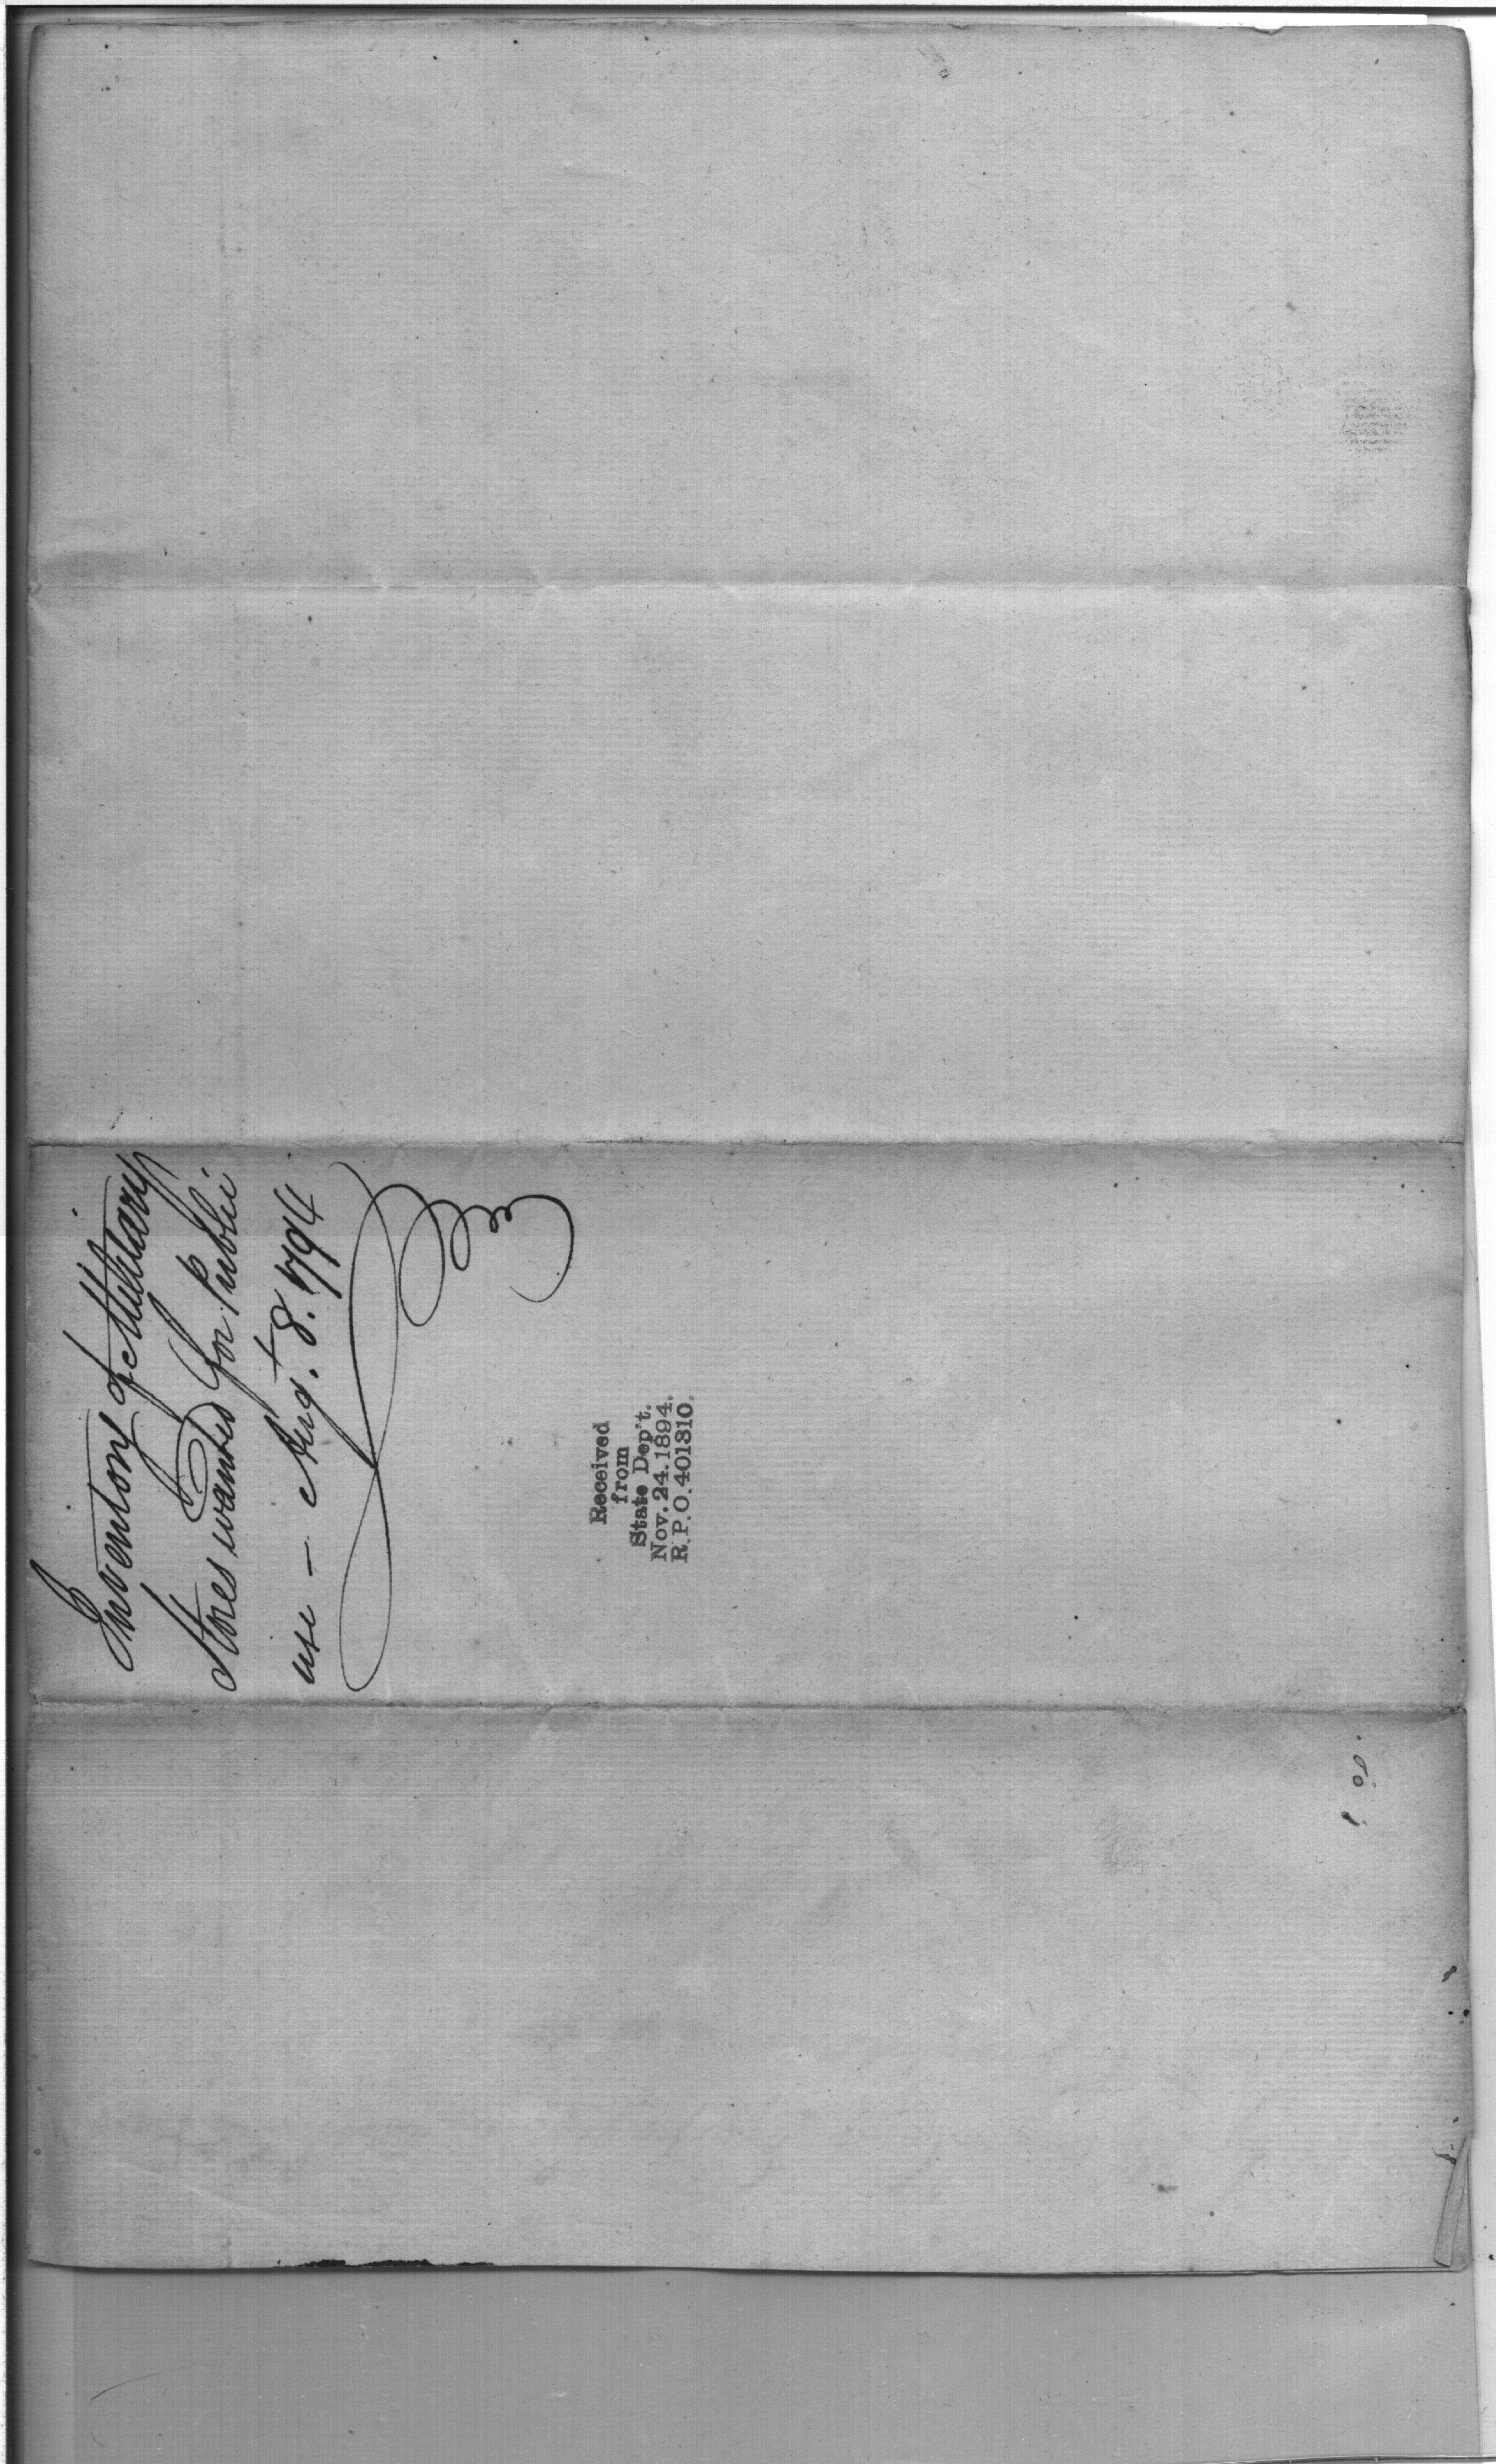 Inventory of Military
Stores wanted for Public
use - Augt. 8. 1794
Received
from
State Dep't.
Nov. 24. 1894.
R.P.O. 401310.